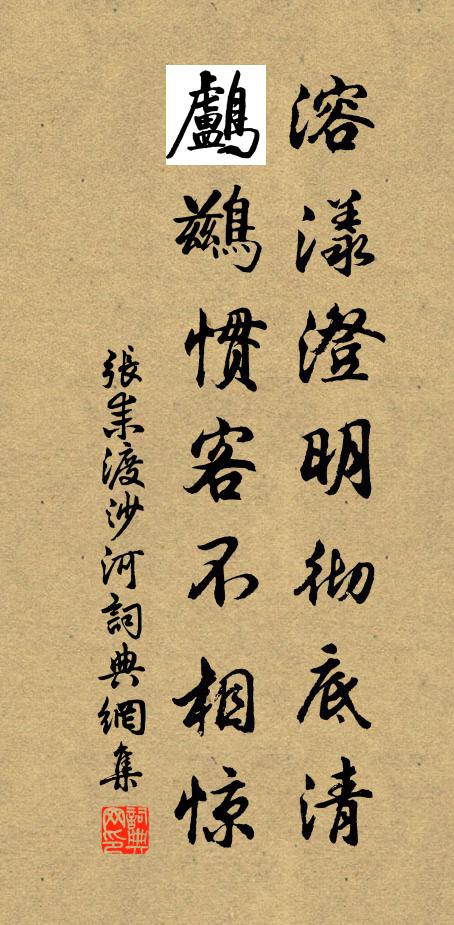 溶漾澄明彻底清
鸕鷀慣客不相惊
張耒渡沙河詞典網集
詞典网印